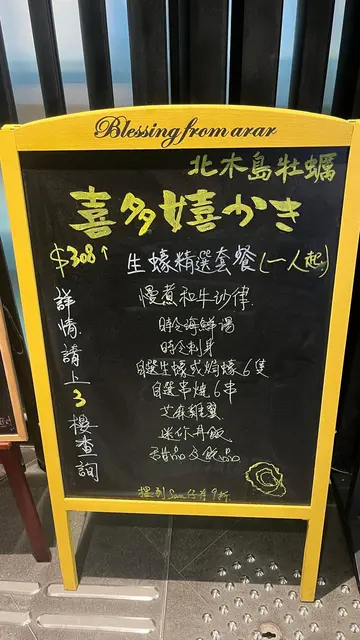 Blessing from arar
北木島牡蠣
喜多嬉かき
$308↑
生蠔精選套餐(一人起)
慢煮和牛沙律
時令海鮮湯
時令刺身
自選生蠔或焗蠔6隻
自選串燒6串
芝麻雞翼
迷你丼飯
甜品及飲品
詳情請上3樓查詢
搵到Sam仔有9折